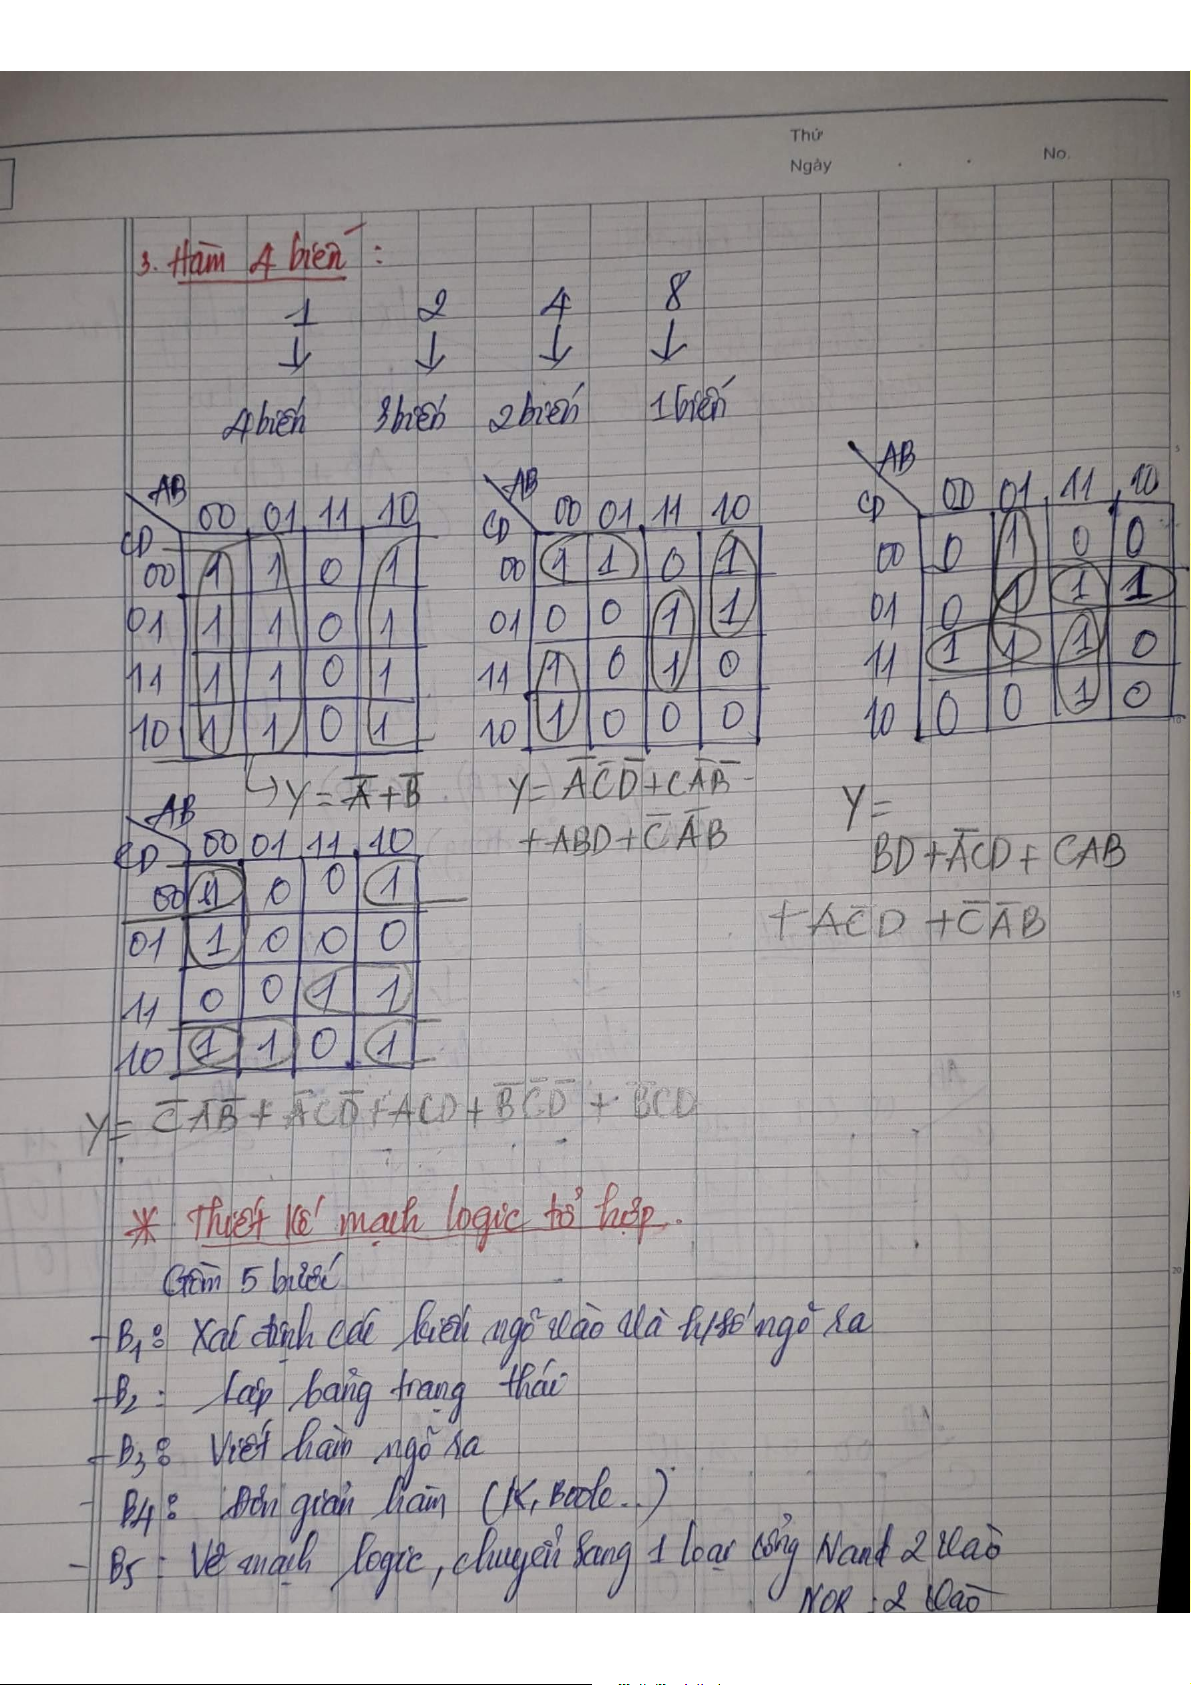 Thứ
Ngày
No.
3. Hàm 4 biến :
1 2 4 8
↓ ↓ ↓ ↓
4 biến 3 biến 2 biến 1 biến
AB
CD 00 01 11 10
00 1 1 0 1
01 1 1 0 1
11 1 1 0 1
10 1 1 0 1
↳ Y = A̅ + B̅
AB
CD 00 01 11 10
00 1 1 0 1
01 0 0 1 1
11 1 0 1 0
10 1 0 0 0
Y = A̅C̅D̅ + CA̅B̅
+ ABD + C̅A̅B
AB
CD 00 01 11 10
00 0 1 0 0
01 0 1 1 1
11 1 1 1 0
10 0 0 1 0
Y =
BD + A̅CD + CAB
+ AC̅D + C̅A̅B
AB
CD 00 01 11 10
00 1 0 0 1
01 1 0 0 0
11 0 0 1 1
10 1 1 0 1
Y = C̅A̅B̅ + A̅CD̅ + ACD + B̅C̅D̅ + B̅CD
* Thiết kế mạch logic tổ hợp.
Gồm 5 bước
- B1: Xác định các biến ngõ vào và ngõ ra
- B2: Lập bảng trạng thái
- B3: Viết hàm ngõ ra
- B4: Đơn giản hàm (K, Boole..)
- B5: Vẽ mạch logic, chuyển sang 1 loại cổng Nand 2 vào
NOR : 2 vào